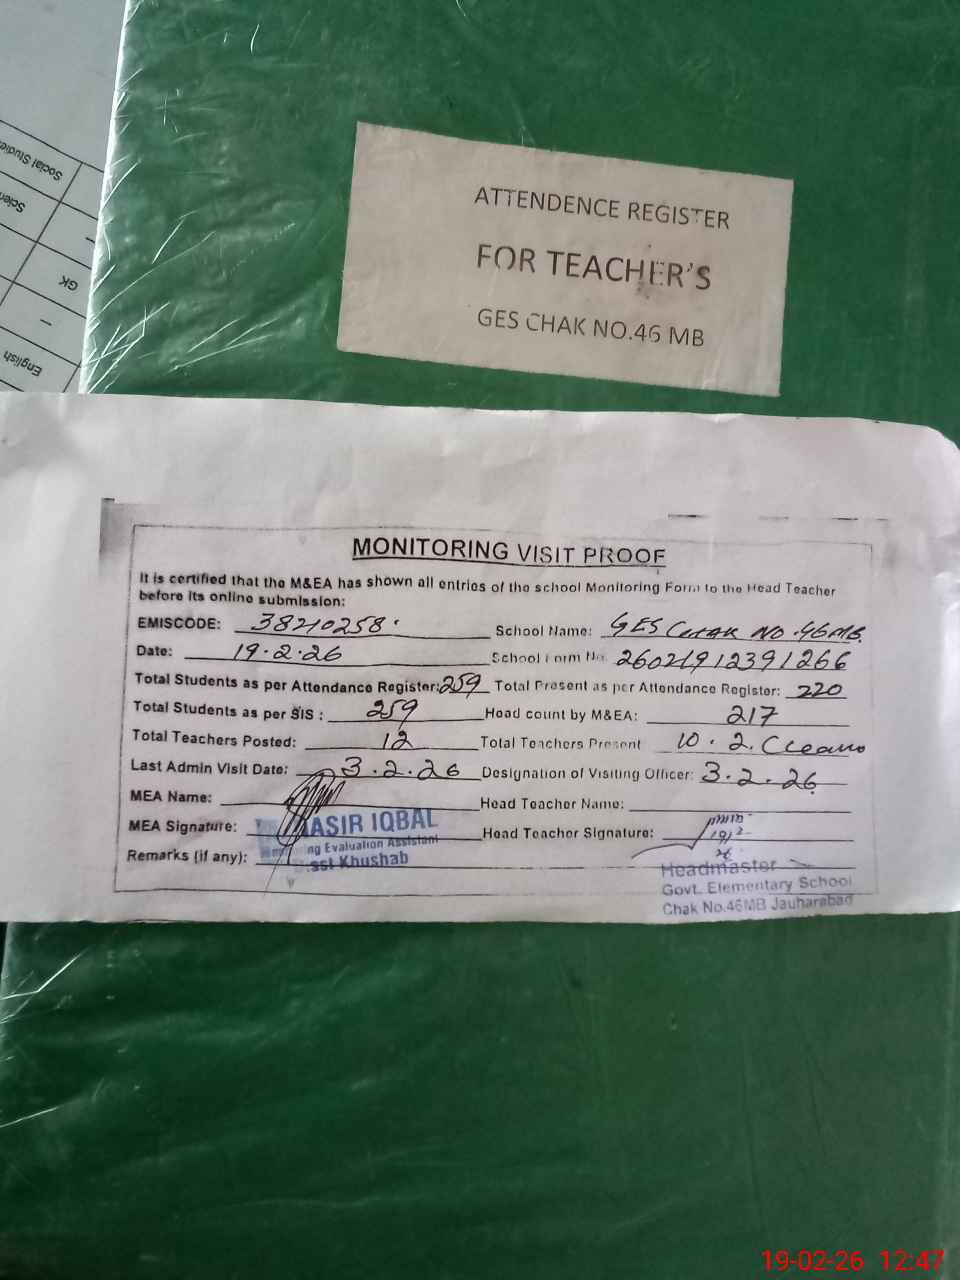 Social Studies
GK
–
English
ATTENDENCE REGISTER
FOR TEACHER'S
GES CHAK NO.46 MB
MONITORING VISIT PROOF
It is certified that the M&EA has shown all entries of the school Monitoring Form to the Head Teacher
before its online submission:
EMISCODE: 38210258. School Name: GES CHAK NO.46MB.
Date: 19.2.26 School Form No. 26021912391266
Total Students as per Attendance Register: 259 Total Present as per Attendance Register: 220
Total Students as per SIS : 259 Head count by M&EA: 217
Total Teachers Posted: 12 Total Teachers Present 10. 2.
Last Admin Visit Date: 3.2.26 Designation of Visiting Officer: 3.2.26
MEA Name: Head Teacher Name:
MEA Signature: ASIR IQBAL Head Teacher Signature: 19/2
ng Evaluation Assistant 26
Remarks (if any): Khushab
Headmaster
Govt. Elementary School
Chak No.46MB Jauharabad
19-02-26 12:47